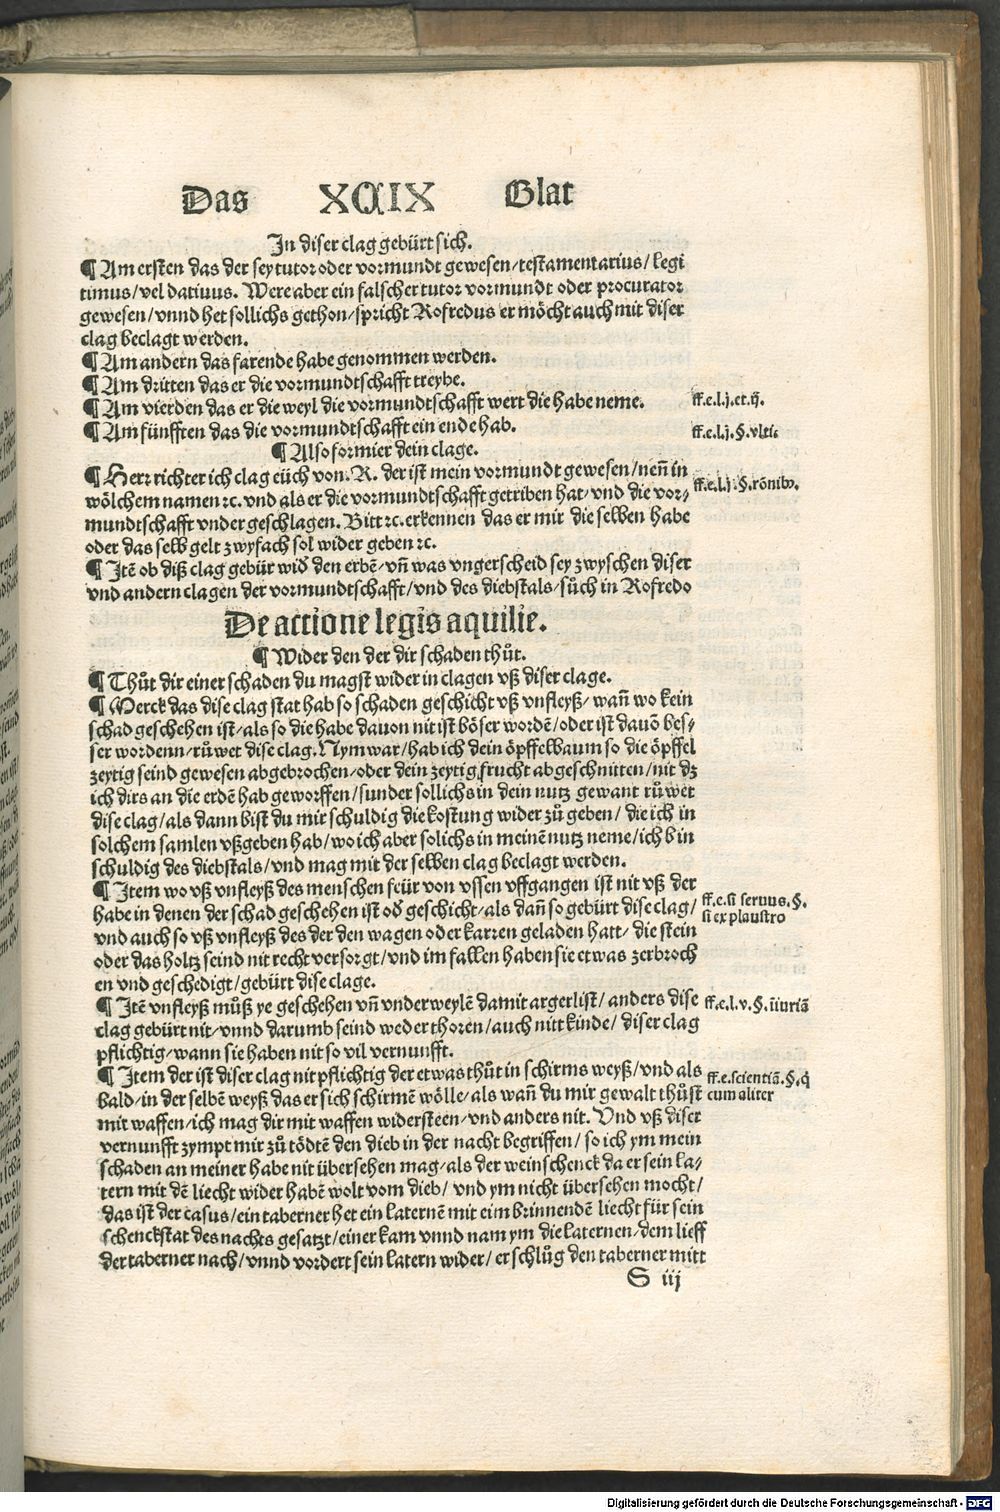 Das XCIX Blat
In diser clag gebürt sich.
¶ Am ersten das der sey tutor oder vormundt gewesen/testamentarius/legi
timus/vel datiuus. Were aber ein falscher tutor vormundt oder procurator
gewesen/vnnd het sollichs gethon/spricht Rofredus er möcht auch mit diser
clag beclagt werden.
¶ Am andern das farende habe genommen werden.
¶ Am dritten das er die vormundtschafft treybe.
¶ Am vierden das er die weyl die vormundtschafft wert die habe neme. ff.e.l.j.et.ij.
¶ Am fünfften das die vormundtschafft ein ende hab. ff.e.l.j.§.vlti.
¶ Also formier dein clage.
¶ Herr richter ich clag eüch von .R. der ist mein vormundt gewesen/nen̄ in
wölchem namen ꝛc. vnd als er die vormundtschafft getriben hat/vnd die vor/ ff.e.l.j.§.rōnibꝰ.
mundtschafft vnder geschlagen. Bitt ꝛc. erkennen das er mir die selben habe
oder das selb gelt zwyfach sol wider geben ꝛc.
¶ Itē ob diß clag gebür wid̛ den erbē/vn̄ was vngerscheid sey zwyschen diser
vnd andern clagen der vormundtschafft/vnd des diebstals/sůch in Rofredo
De actione legis aquilie.
¶ Wider den der dir schaden thůt.
¶ Thůt dir einer schaden du magst wider in clagen vß diser clage.
¶ Merck das dise clag stat hab so schaden geschicht vß vnfleyß/wan̄ wo kein
schad geschehen ist/als so die habe dauon nit ist böser wordē/oder ist dauō bes/
ser wordenn/růwet dise clag. Nym war/hab ich dein öpffelbaum so die öpffel
zeytig seind gewesen abgebrochen/oder dein zeytig frucht abgeschnitten/nit dz
ich dirs an die erdē hab geworffen/sunder sollichs in dein nutz gewant růwet
dise clag/als dann bist du mir schuldig die kostung wider zů geben/die ich in
solchem samlen vßgeben hab/wo ich aber solichs in meinē nutz neme/ich bin
schuldig des diebstals/vnd mag mit der selben clag beclagt werden.
¶ Item wo vß vnfleyß des menschen feür von vssen vffgangen ist nit vß der
habe in denen der schad geschehen ist od̛ geschicht/als dan̄ so gebürt dise clag/ ff.e.si seruus.§.
si ex plaustro
vnd auch so vß vnfleyß des der den wagen oder karren geladen hatt/die stein
oder das holtz seind nit recht versorgt/vnd im fallen haben sie etwas zerbroch
en vnd geschedigt/gebürt dise clage.
¶ Itē vnfleyß můß ye geschehen vn̄ vnderweylē damit argerlist/anders dise ff.e.l.v.§.iniuriā
clag gebürt nit/vnnd darumb seind weder thoren/auch nitt kinde/diser clag
pflichtig/wann sie haben nit so vil vernunfft.
¶ Item der ist diser clag nit pflichtig der etwas thůt in schirms weyß/vnd als ff.e.scientiā.§.q̄
bald/in der selbē weyß das er sich schirmē wölle/als wan̄ du mir gewalt thůst cum aliter
mit waffen/ich mag dir mit waffen widersteen/vnd anders nit. Vnd vß diser
vernunfft zympt mir zů tödtē den dieb in der nacht begriffen/so ich ym mein
schaden an meiner habe nit übersehen mag/als der weinschenck da er sein la/
tern mit dē liecht wider habē wolt vom dieb/vnd ym nicht übersehen mocht/
das ist der casus/ein taberner het ein laternē mit eim brinnendē liecht für sein
schenckstat des nachts gesatzt/einer kam vnnd nam ym die laternen/dem lieff
der taberner nach/vnnd vordert sein latern wider/er schlůg den taberner mitt
S iij
Digitalisierung gefördert durch die Deutsche Forschungsgemeinschaft - DFG